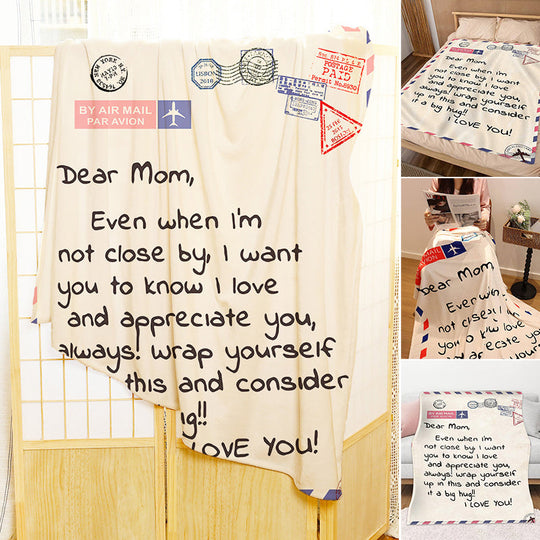 NEW YORK, NY
LISBON
2010
POSTAGE
PAID
Permit No.6930
BY AIR MAIL
PAR AVION
Dear Mom,
Even when i'm
not close by, I want
you to know I love
and appreciate you,
always! wrap yourself
this and consider
ug!!
I LOVE YOU!
Dear Mom,
Even when i'm
not close by, I want
you to know I love
and appreciate you,
always! wrap yourself
up in this and consider
it a big hug!!
I LOVE YOU!
AIR MAIL
AVION
Dear Mom
Even
not clos
love
ciate you
BY AIR MAIL
PAR AVION
Dear Mom,
Even when i'm
not close by, I want
you to know I love
and appreciate you,
always! wrap yourself
up in this and consider
it a big hug!!
I LOVE YOU!